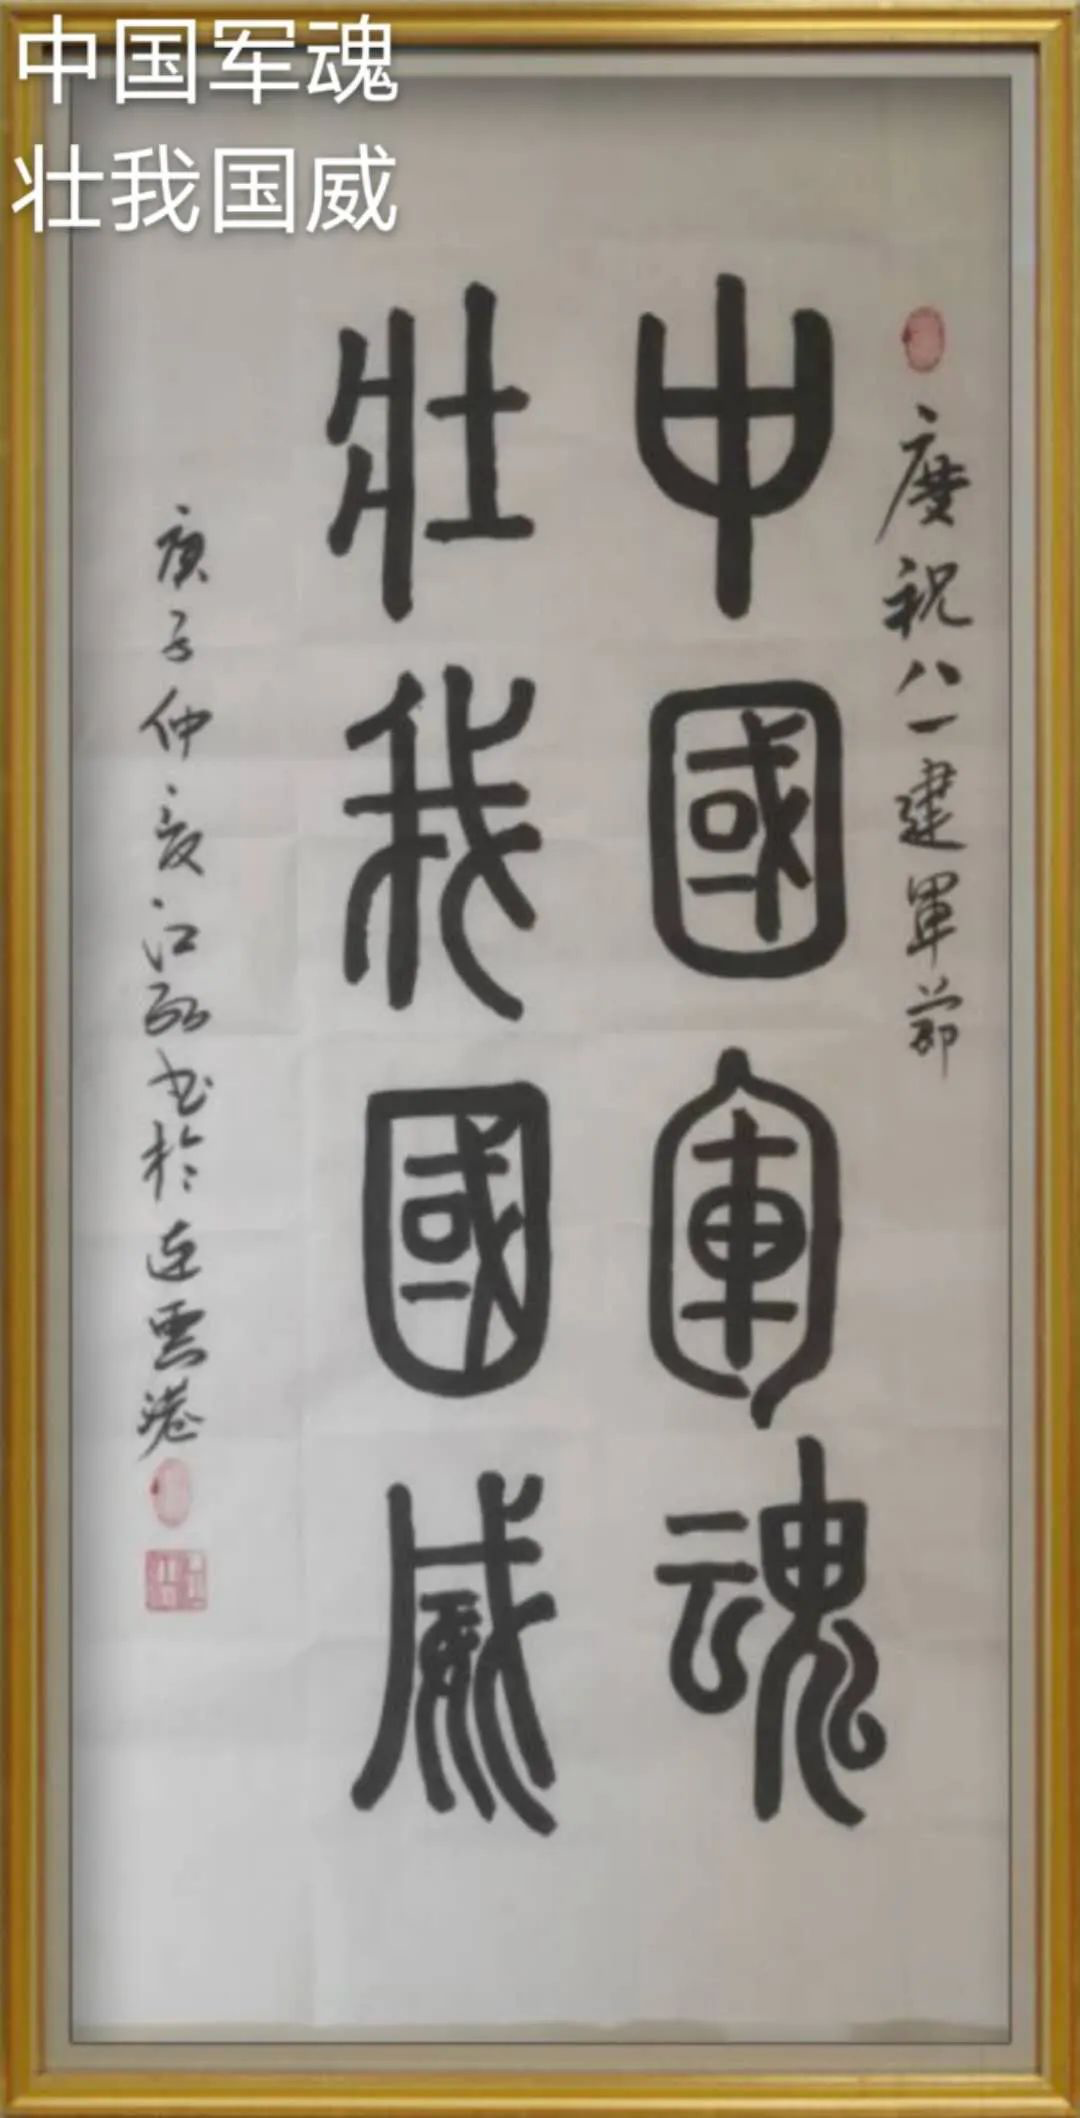 中国军魂
壮我国威
慶祝八一建軍節
中國軍魂
壯我國威
庚子仲夏江弘书於连雲港